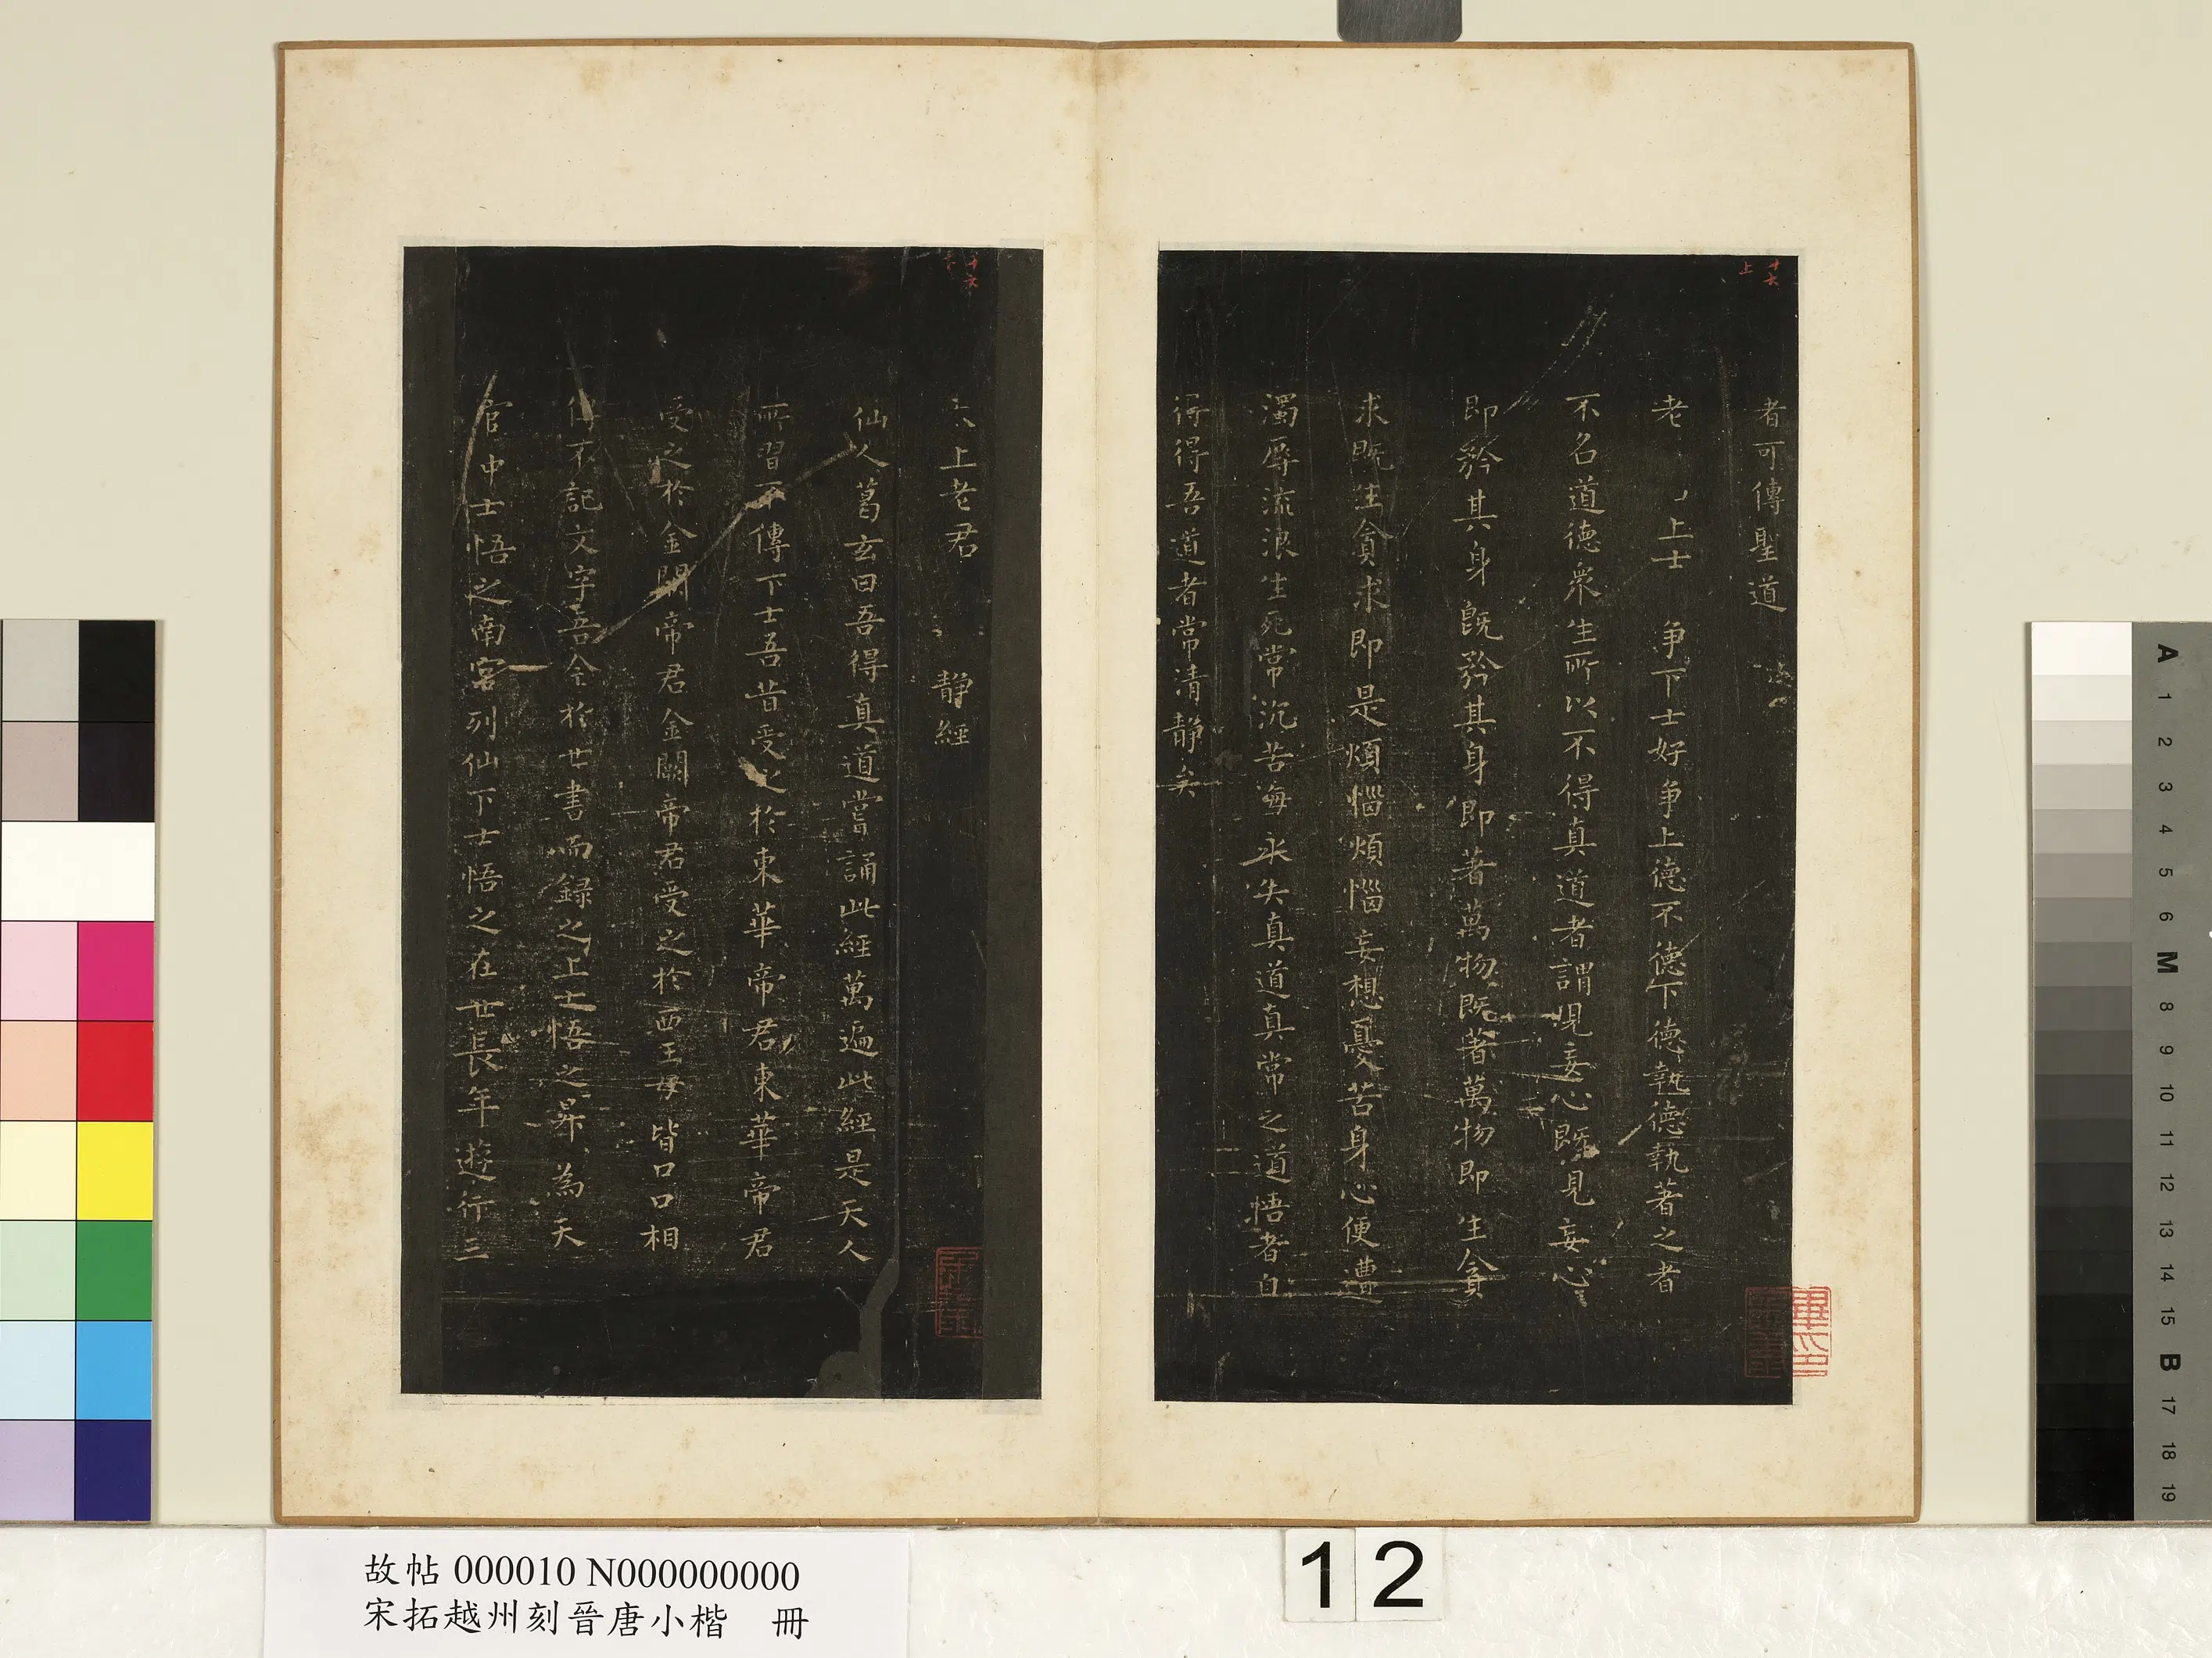 者可傳聖道
老 上士 争下士好争上德不德下德執德執著之者
不名道德眾生所以不得真道者謂見妄心既見妄心
即矜其身既矜其身即著萬物既著萬物即生貪
求既生貪求即是煩惱煩惱妄想憂苦身心便遭
濁辱流浪生死常沉苦海永失真道真常之道悟者自
得得吾道者常清静矣
太上老君 静經
仙人葛玄曰吾得真道嘗誦此經萬遍此經是天人
所習不傳下士吾昔受之於東華帝君東華帝君
受之於金闕帝君金闕帝君受之於西王母皆口口相
傳不記文字吾今於世書而録之上士悟之昇為天
官中士悟之南宮列仙下士悟之在世長年遊行三
故帖 000010 N000000000
宋拓越州刻晉唐小楷 冊
12
A
1
2
3
4
5
6
M
8
9
10
11
12
13
14
15
B
17
18
19